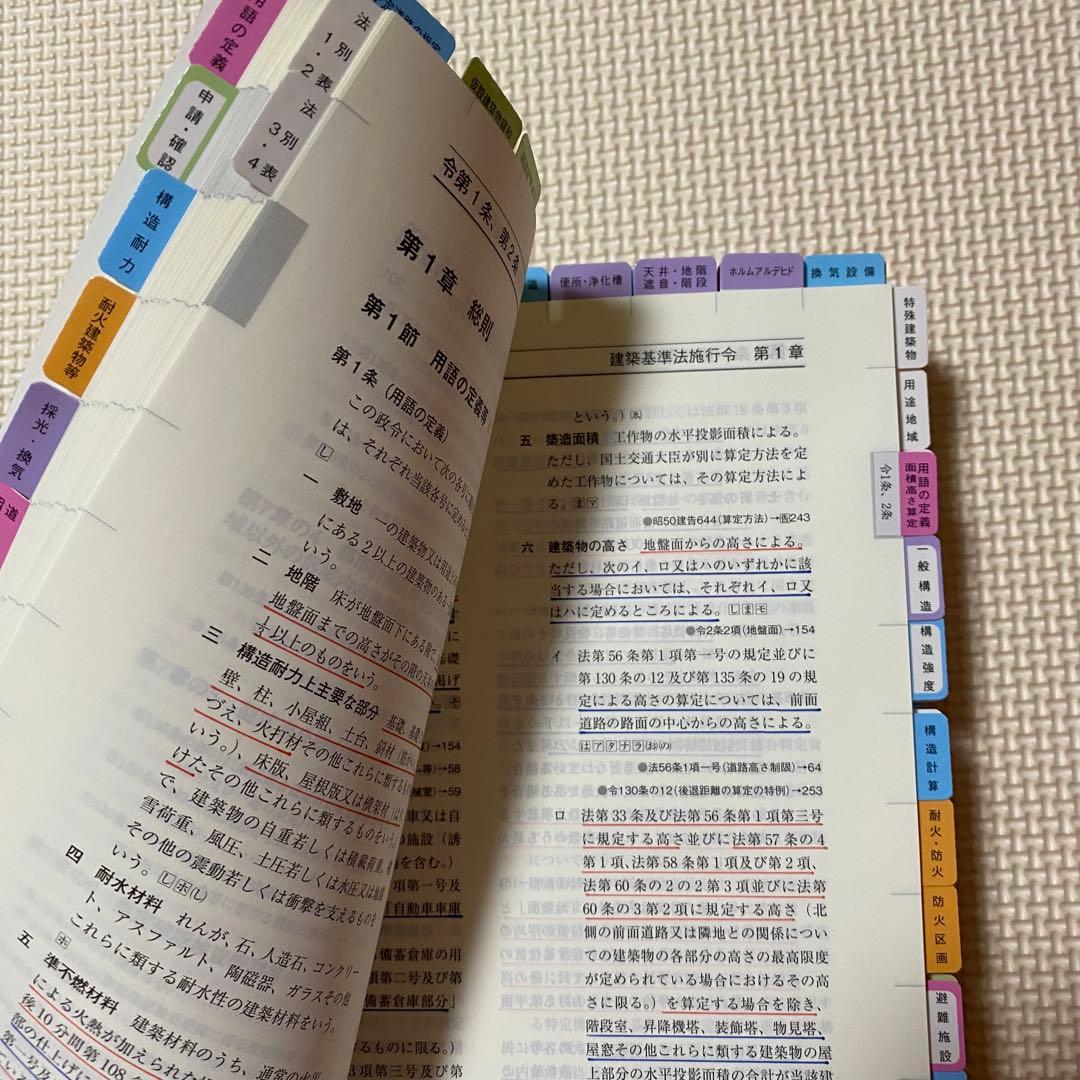 用語の定義
申請・確認
構造耐力
耐火建築物等
採光・換気
用道
法別
1・2表
法別
3・4表
仮設建築物緩和
令第1条、第2条
第1章 総則
第1節 用語の定義等
第1条(用語の定義)
この政令において次の各号に
は、それぞれ当該各号に定める
一 敷地 一の建築物又は用途上
にある2以上の建築物のある
いう。
二 地階 床が地盤面下にある階で、
地盤面までの高さがその階の天井
1/3以上のものをいう。
三 構造耐力上主要な部分 基礎、基礎
壁、柱、小屋組、土台、斜材(筋かい
づえ、火打材その他これらに類するもの
いう。)、床版、屋根版又は横架材(は
けたその他これらに類するものをいう。
で、建築物の自重若しくは積載荷重、積
雪荷重、風圧、土圧若しくは水圧又は地震
その他の震動若しくは衝撃を支えるものを
いう。
四 耐水材料 れんが、石、人造石、コンクリー
ト、アスファルト、陶磁器、ガラスその他
これらに類する耐水性の建築材料をいう。
五 準不燃材料 建築材料のうち、通常の火災
による火熱が加えられた
後10分間第108条
第一号及
→154
→58
→59
車又は自
の施設(誘
を含む。)
項第一号及
「自動車車庫
備蓄倉庫の用
項第二号及び第
備蓄倉庫部分」
ものに限る。)
便所・浄化槽
天井・地階
遮音・階段
ホルムアルデヒド
換気設備
建築基準法施行令 第1章
という。)
五 築造面積 工作物の水平投影面積による。
ただし、国土交通大臣が別に算定方法を定
めた工作物については、その算定方法によ
る。
●昭50建告644(算定方法)→告243
六 建築物の高さ 地盤面からの高さによる。
ただし、次のイ、ロ又はハのいずれかに該
当する場合においては、それぞれイ、ロ又
はハに定めるところによる。しまモ
●令2条2項(地盤面)→154
イ 法第56条第1項第一号の規定並びに
第130条の12及び第135条の19の規
定による高さの算定については、前面
道路の路面の中心からの高さによる。
はアタナラ(お)(の)
●法56条1項一号(道路高さ制限)→64
●令130条の12(後退距離の算定の特例)→253
ロ 法第33条及び法第56条第1項第三号
に規定する高さ並びに法第57条の4
第1項、法第58条第1項及び第2項、
法第60条の2の2第3項並びに法第
60条の3第2項に規定する高さ(北
側の前面道路又は隣地との関係につい
ての建築物の各部分の高さの最高限度
が定められている場合におけるその高
さに限る。)を算定する場合を除き、
階段室、昇降機塔、装飾塔、物見塔、
屋窓その他これらに類する建築物の屋
上部分の水平投影面積の合計が当該建
特殊建築物
用途地域
用語の定義
面積高さ算定
令1条、2条
一般構造
構造強度
構造計算
耐火・防火
防火区画
避難施設